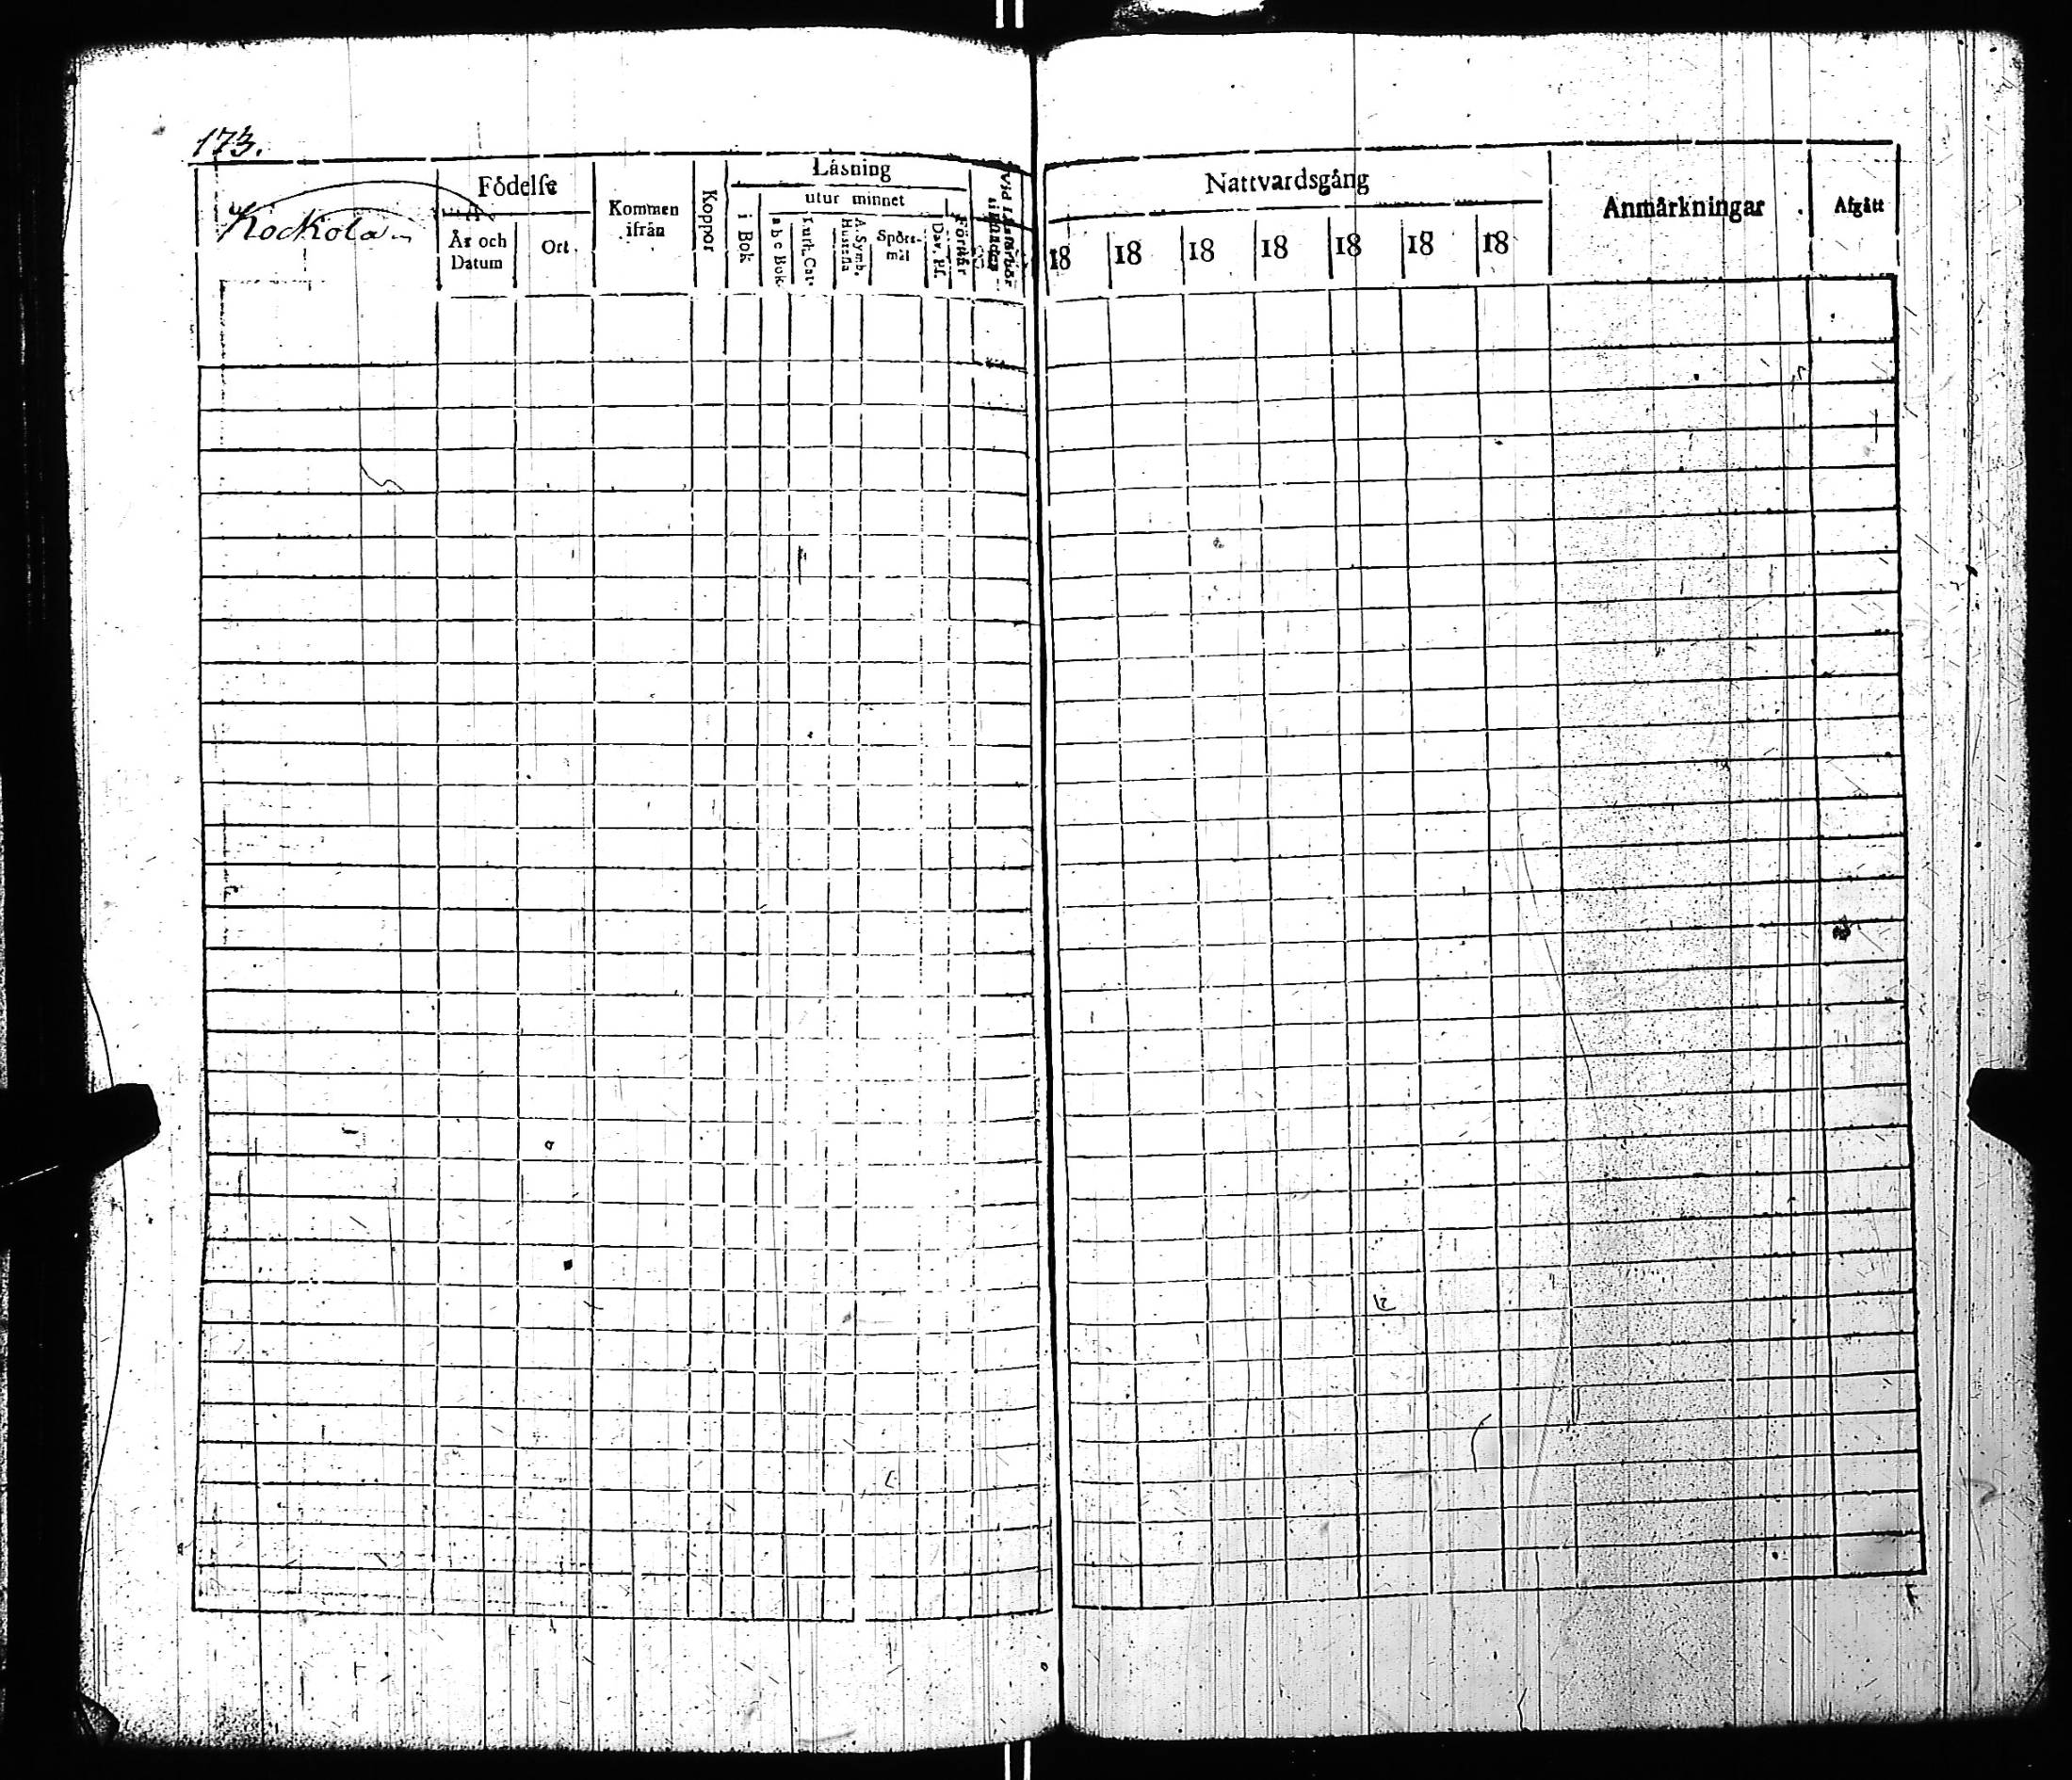 173.
Kockola
Födelse
År och Datum
Ort
Kommen ifrån
Koppor
Läsning
i Bok
utur minnet
a b c Bok
Luth. Cat.
A. Symb. Hustafla
Spörs-mål
Dav. Ps.
Förstår
Nattvardsgång
18 18 18 18 18 18 18
Anmärkningar
Afgått